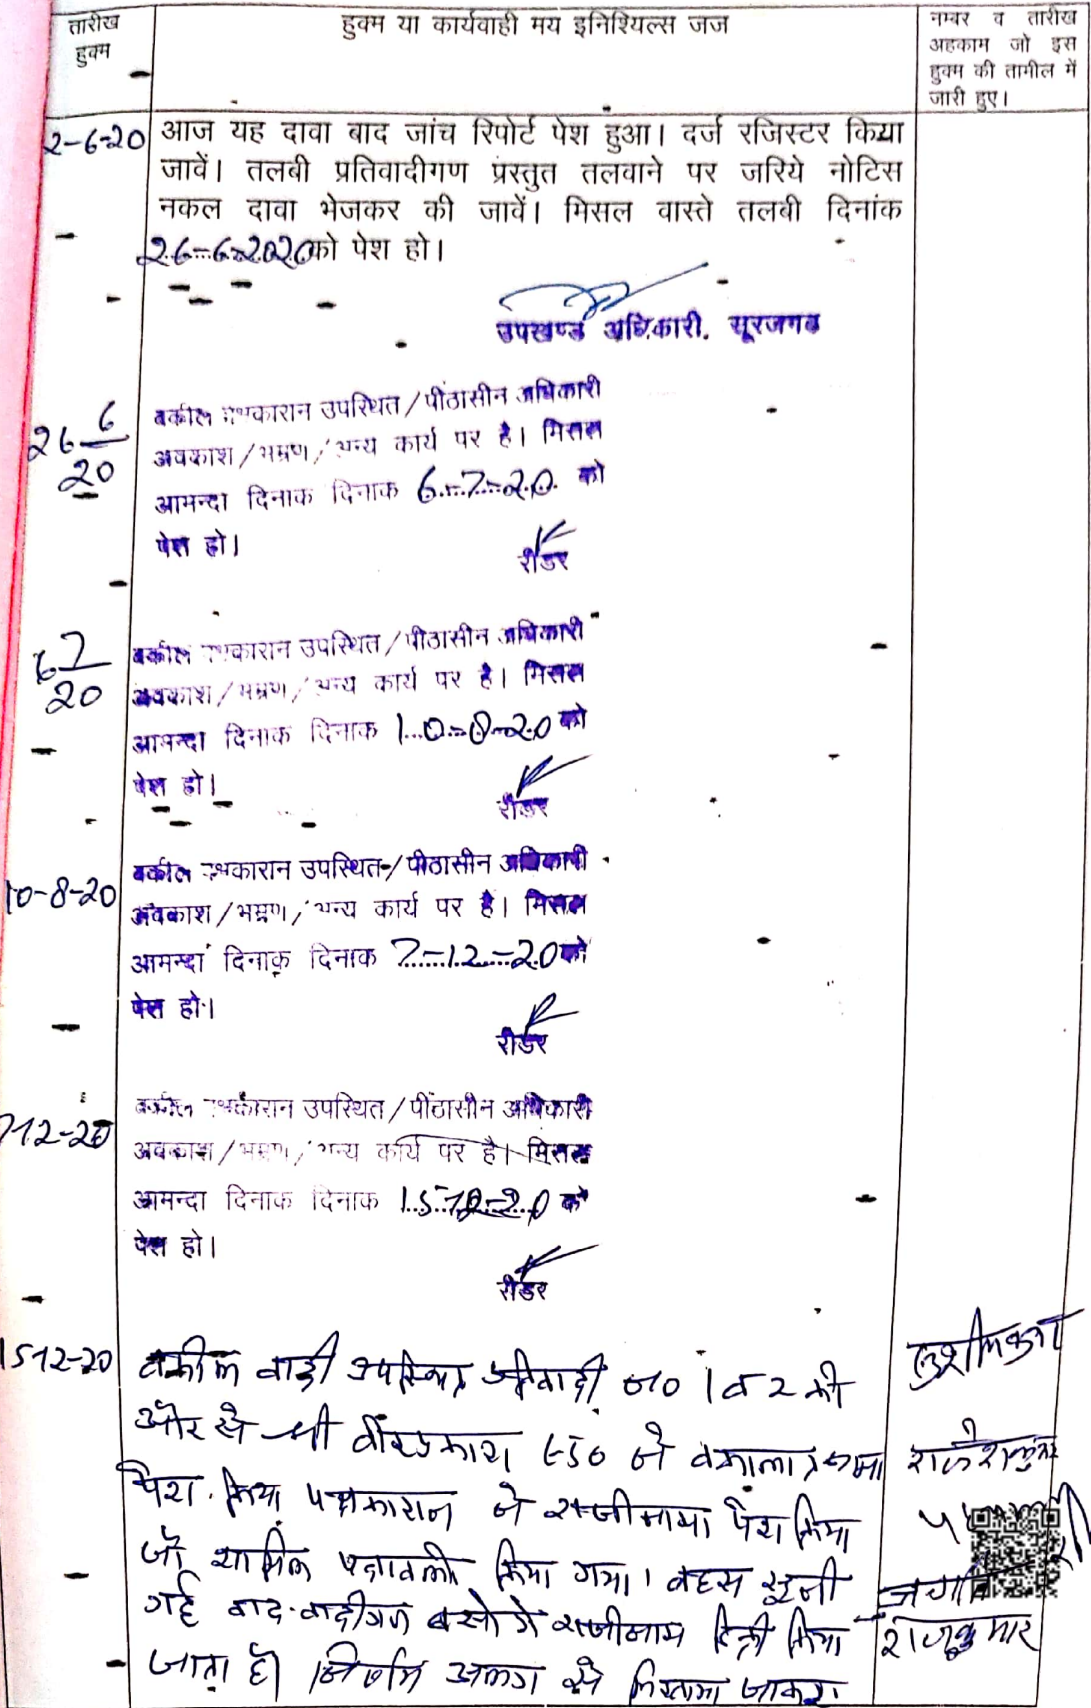 तारीख
हुक्म
हुक्म या कार्यवाही मय इनिशियल्स जज
नम्बर व तारीख
अहकाम जो इस
हुक्म की तामील में
जारी हुए।
2-6-20
आज यह दावा बाद जांच रिपोर्ट पेश हुआ। दर्ज रजिस्टर किया
जावें। तलबी प्रतिवादीगण प्रस्तुत तलवाने पर जरिये नोटिस
नकल दावा भेजकर की जावें। मिसल वास्ते तलबी दिनांक
26-6-2020 को पेश हो।
उपखण्ड अधिकारी, सूरजगढ
26 6/20
वकील पक्षकारान उपस्थित/पीठासीन अधिकारी
अवकाश/भम्रण/अन्य कार्य पर है। मिसल
आमन्दा दिनाक दिनाक 6-7-20 को
पेश हो।
रीडर
6 7/20
वकील पक्षकारान उपस्थित/पीठासीन अधिकारी
अवकाश/भम्रण/अन्य कार्य पर है। मिसल
आमन्दा दिनाक दिनाक 10-8-20 को
पेश हो।
रीडर
10-8-20
वकील पक्षकारान उपस्थित/पीठासीन अधिकारी
अवकाश/भम्रण/अन्य कार्य पर है। मिसल
आमन्दा दिनाक दिनाक 7-12-20 को
पेश हो।
रीडर
7-12-20
वकील पक्षकारान उपस्थित/पीठासीन अधिकारी
अवकाश/भम्रण/अन्य कार्य पर है। मिसल
आमन्दा दिनाक दिनाक 15-12-20 को
पेश हो।
रीडर
15-12-20
वकील वादी उपस्थित प्रतिवादी न0 1 व 2 की
और से श्री वीरप्रकाश ने वकालतनामा
पेश किया पक्षकारान ने राजीनामा पेश किया
जो शामिल पत्रावली किया गया। बहस सुनी
गई वाद वादीगण राजीनामा डिक्री किया
जाता है। निर्णय अलग से लिखाया जाकर
राजेश कुमार
राजकुमार